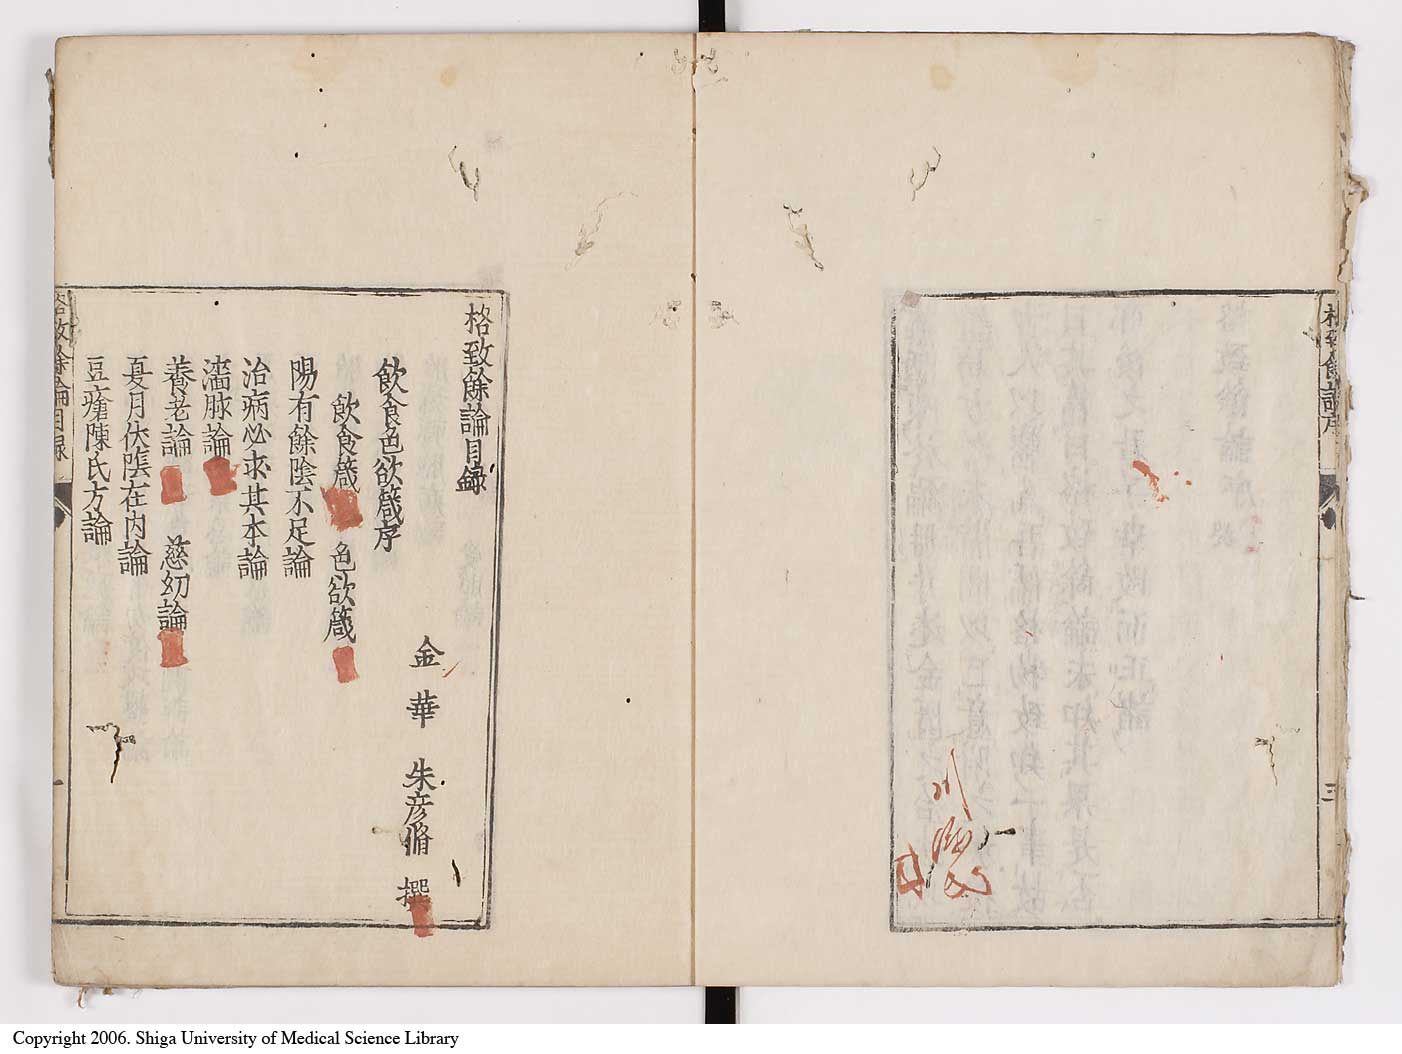 格致餘論序
三
格致餘論目錄
金華 朱彦脩 撰
飲食色欲箴序
飲食箴 色欲箴
陽有餘陰不足論
治病必求其本論
濇脉論
養老論 慈幼論
夏月伏陰在內論
豆瘡陳氏方論
格致餘論目录
Copyright 2006. Shiga University of Medical Science Library